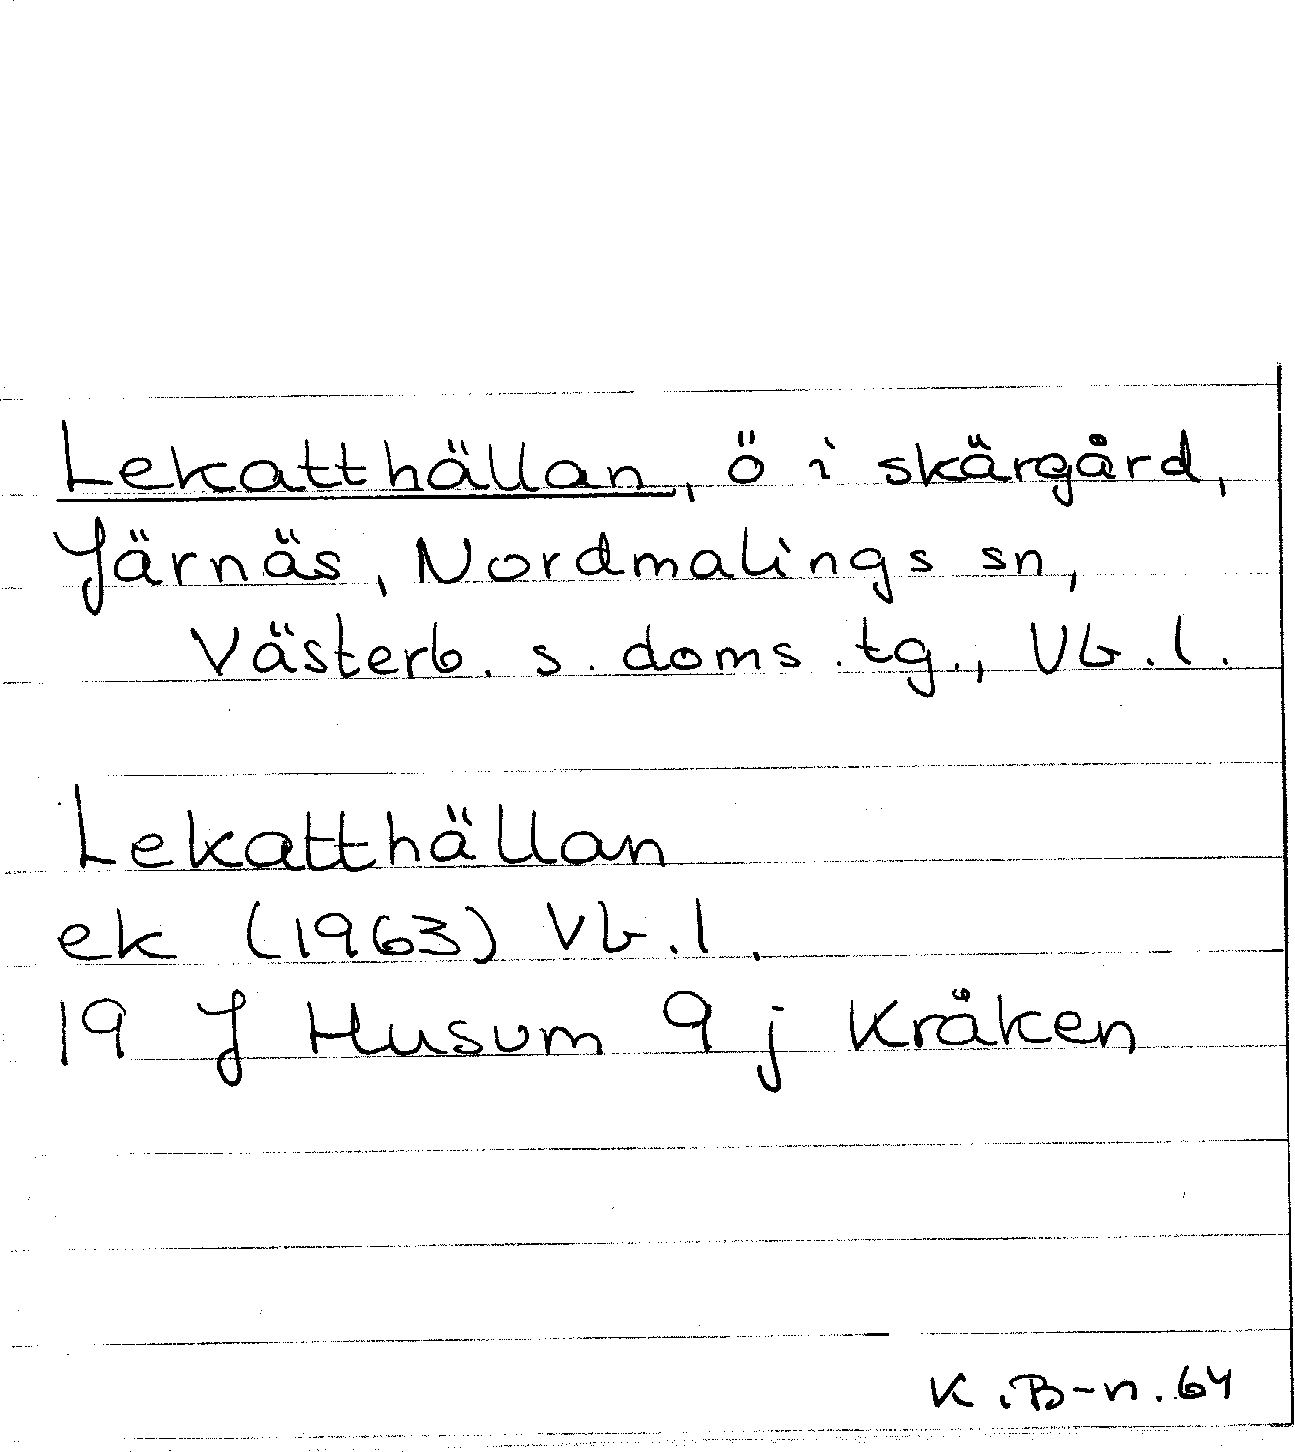 Lekatthällan, ö i skärgård,
Järnäs, Nordmalings sn,
Västerb. s. doms. tg., Vb. l.
Lekatthällan
ek (1963) Vb. l.
19 J Husum 9 j Kråken
K. B-n. 64